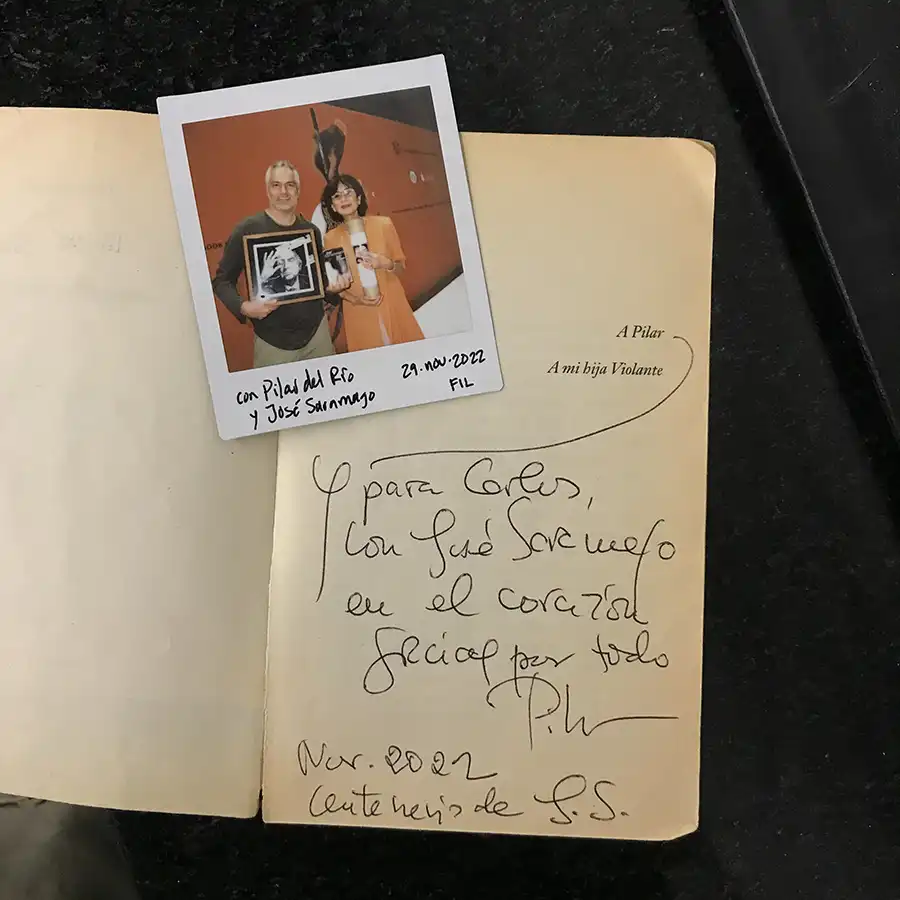 con Pilar del Río
y José Saramago
29.nov.2022
FIL
A Pilar
A mi hija Violante
Y para Carlos,
con José Saramago
en el corazón
gracias por todo
Pilar
Nov. 2022
Centenario de J.S.